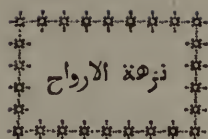 نزهة الارواح